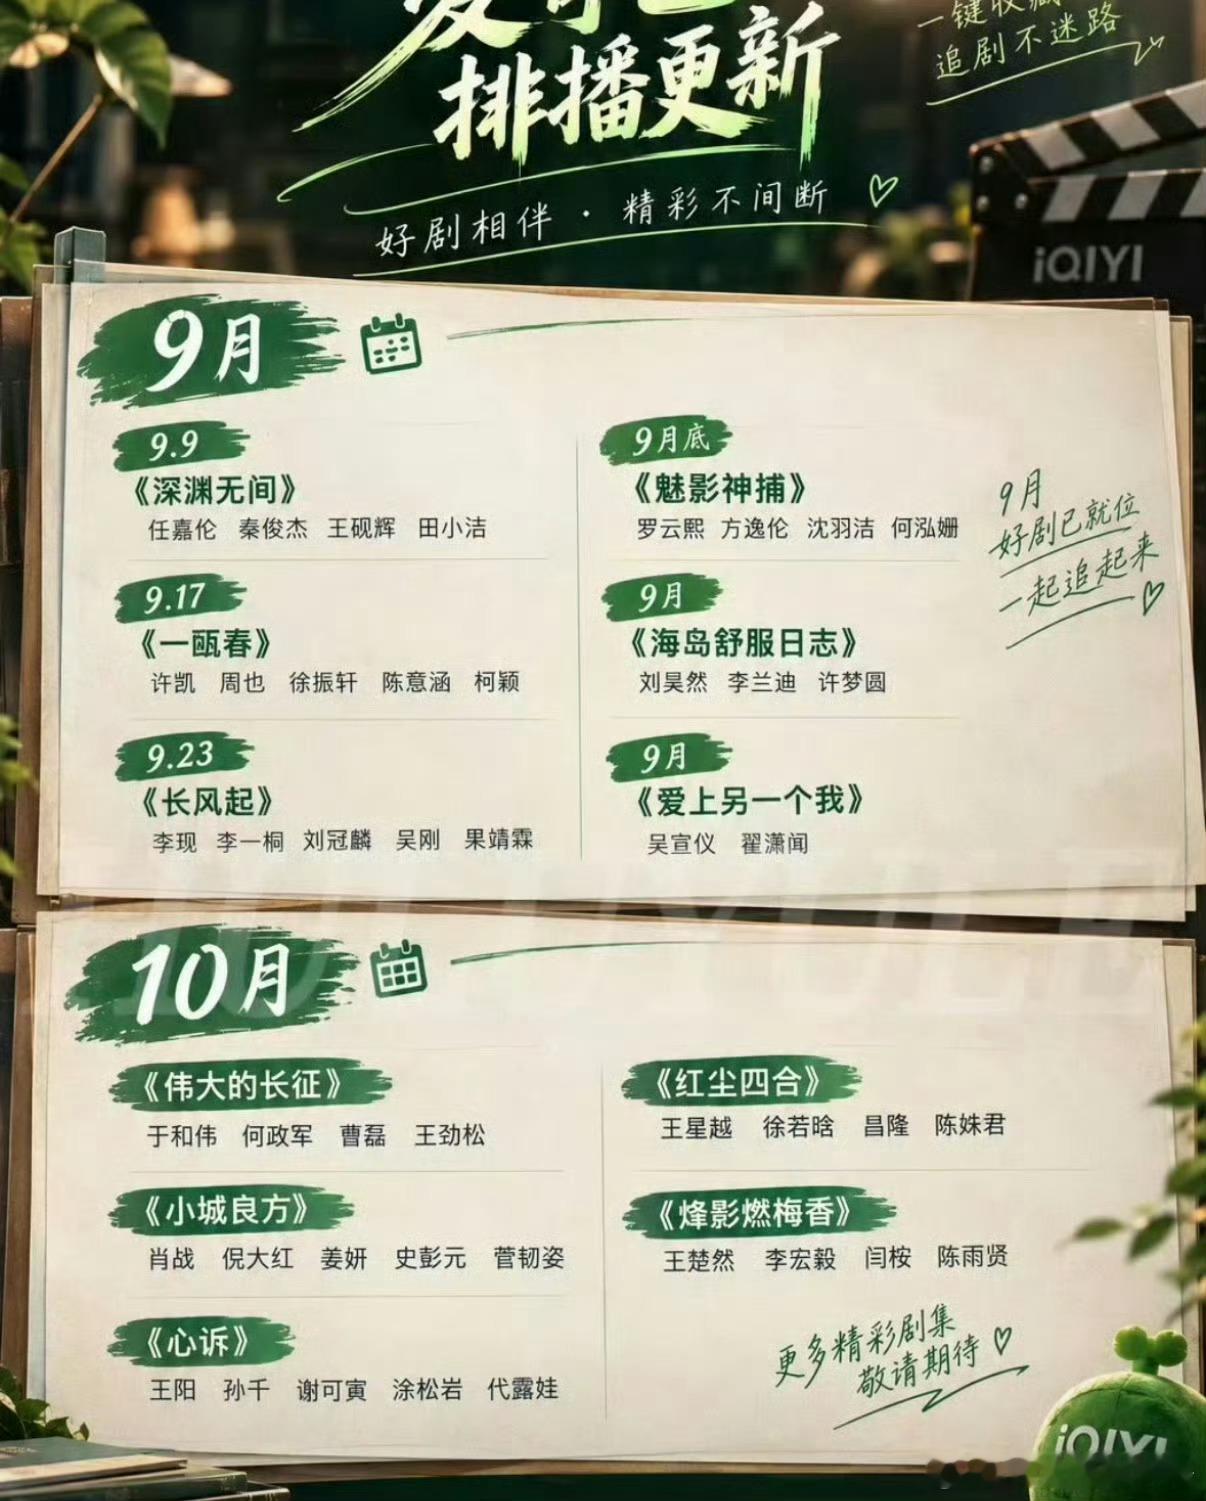 排播更新
一键收藏
追剧不迷路
好剧相伴 · 精彩不间断
iQIYI
9月
9.9
《深渊无间》
任嘉伦 秦俊杰 王砚辉 田小洁
9.17
《一瓯春》
许凯 周也 徐振轩 陈意涵 柯颖
9.23
《长风起》
李现 李一桐 刘冠麟 吴刚 果靖霖
9月底
《魅影神捕》
罗云熙 方逸伦 沈羽洁 何泓姗
9月
《海岛舒服日志》
刘昊然 李兰迪 许梦圆
9月
《爱上另一个我》
吴宣仪 翟潇闻
9月
好剧已就位
一起追起来
10月
《伟大的长征》
于和伟 何政军 曹磊 王劲松
《小城良方》
肖战 倪大红 姜妍 史彭元 菅韧姿
《心诉》
王阳 孙千 谢可寅 涂松岩 代露娃
《红尘四合》
王星越 徐若晗 昌隆 陈姝君
《烽影燃梅香》
王楚然 李宏毅 闫桉 陈雨贤
更多精彩剧集
敬请期待
iQIYI